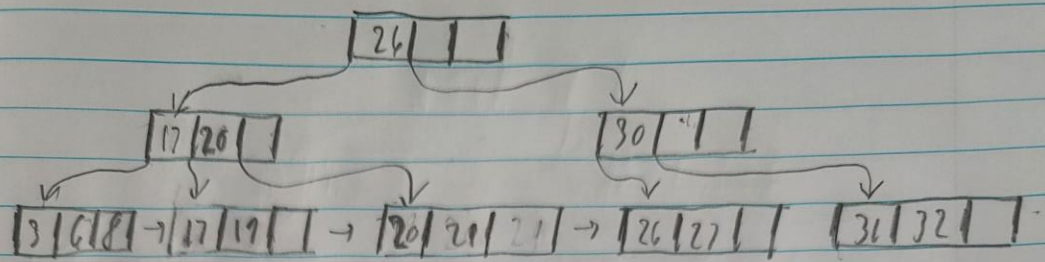 26
17 20 30
3 6 8 17 19 20 21 26 27 31 32